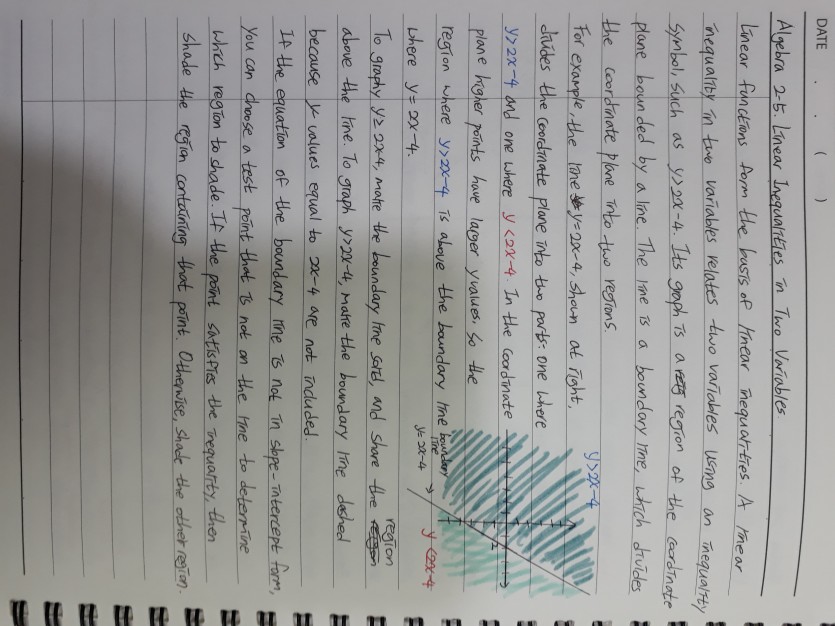 DATE . . ( )
Algebra 2-5. Linear Inequalities in Two Variables
Linear functions form the basis of linear inequalities. A linear
inequality in two variables relates two variables using an inequality
symbol, such as y>2x-4. Its graph is a region of the coordinate
plane bounded by a line. The line is a boundary line, which divides
the coordinate plane into two regions.
For example, the line y=2x-4, shown at right,
divides the coordinate plane into two parts: one where
y>2x-4 and one where y<2x-4. In the coordinate
plane higher points have larger y values, so the
region where y>2x-4 is above the boundary line
where y=2x-4.
y>2x-4
boundary
line
y=2x-4
y<2x-4
To graph y≥2x-4, make the boundary line solid, and share the region
above the line. To graph y>2x-4, make the boundary line dashed
because y values equal to 2x-4 are not included.
If the equation of the boundary line is not in slope-intercept form,
you can choose a test point that is not on the line to determine
which region to shade. If the point satisfies the inequality, then
shade the region containing that point. Otherwise, shade the other region.